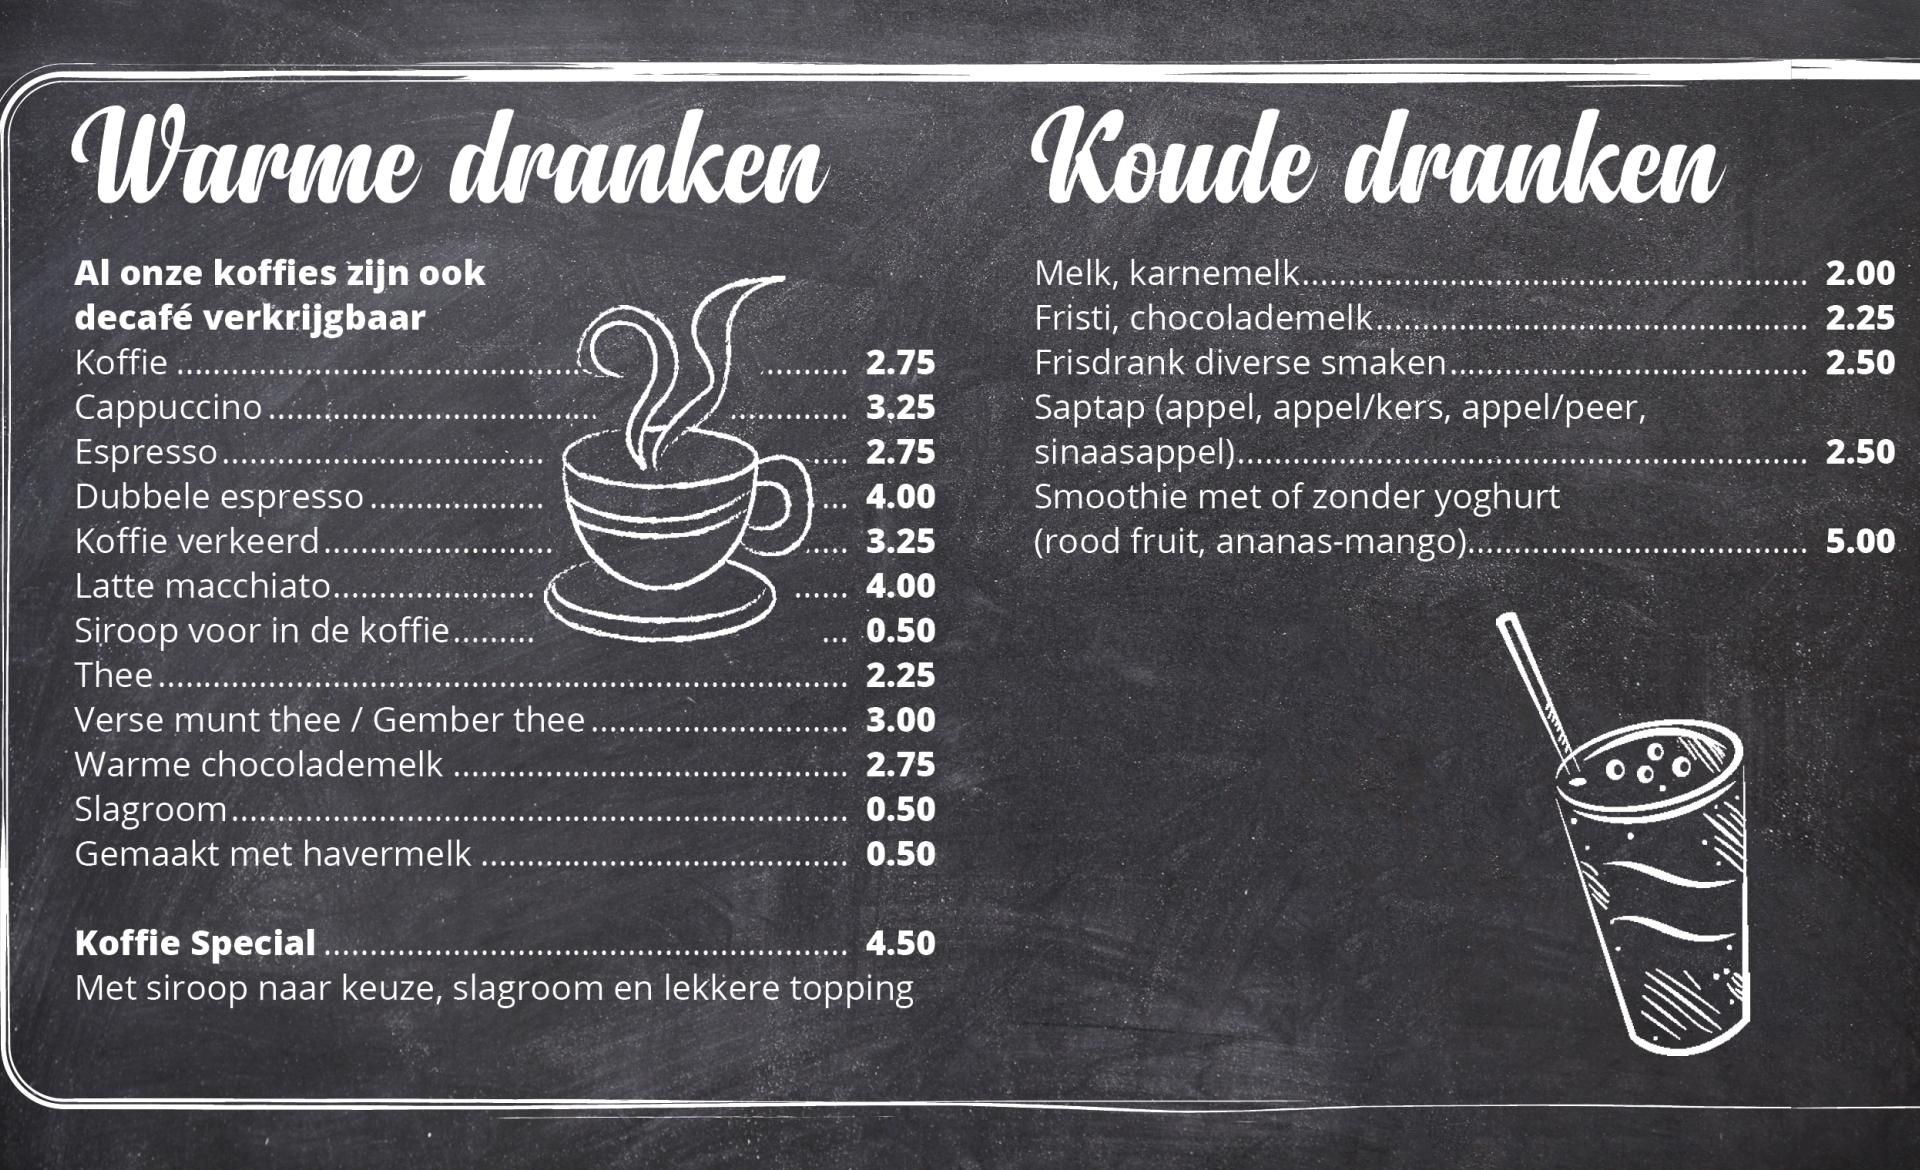 Warme dranken
Al onze koffies zijn ook
decafé verkrijgbaar
Koffie ........................................ 2.75
Cappuccino ........................................ 3.25
Espresso ........................................ 2.75
Dubbele espresso ........................................ 4.00
Koffie verkeerd ........................................ 3.25
Latte macchiato ........................................ 4.00
Siroop voor in de koffie ............ 0.50
Thee ........................................ 2.25
Verse munt thee / Gember thee ............................ 3.00
Warme chocolademelk ........................................ 2.75
Slagroom ........................................ 0.50
Gemaakt met havermelk ........................................ 0.50
Koffie Special ........................................ 4.50
Met siroop naar keuze, slagroom en lekkere topping
Koude dranken
Melk, karnemelk ........................................ 2.00
Fristi, chocolademelk ........................................ 2.25
Frisdrank diverse smaken ........................................ 2.50
Saptap (appel, appel/kers, appel/peer,
sinaasappel) ........................................ 2.50
Smoothie met of zonder yoghurt
(rood fruit, ananas-mango) ........................................ 5.00